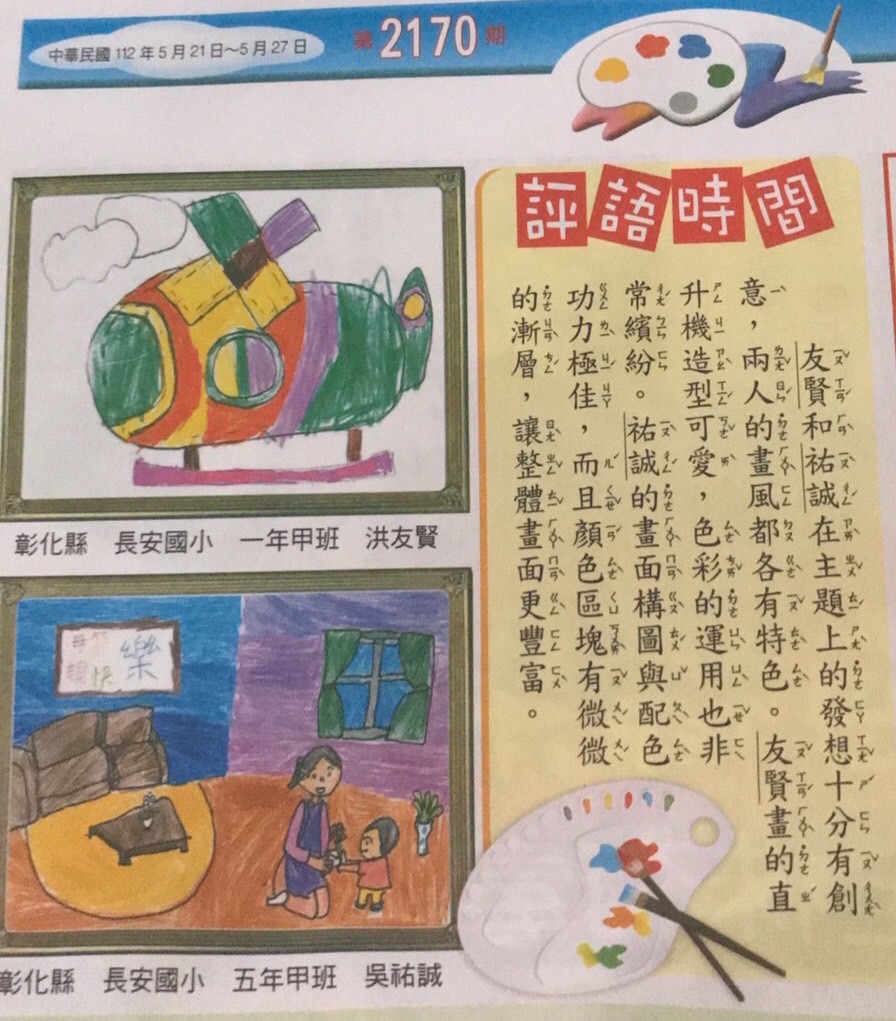 中華民國 112 年 5 月 21 日～5 月 27 日
第 2170 期
評語時間
友賢和祐誠在主題上的發想十分有創
意，兩人的畫風都各有特色。友賢畫的直
升機造型可愛，色彩的運用也非
常繽紛。祐誠的畫面構圖與配色
功力極佳，而且顏色區塊有微微
的漸層，讓整體畫面更豐富。
彰化縣 長安國小 一年甲班 洪友賢
樂
彰化縣 長安國小 五年甲班 吳祐誠